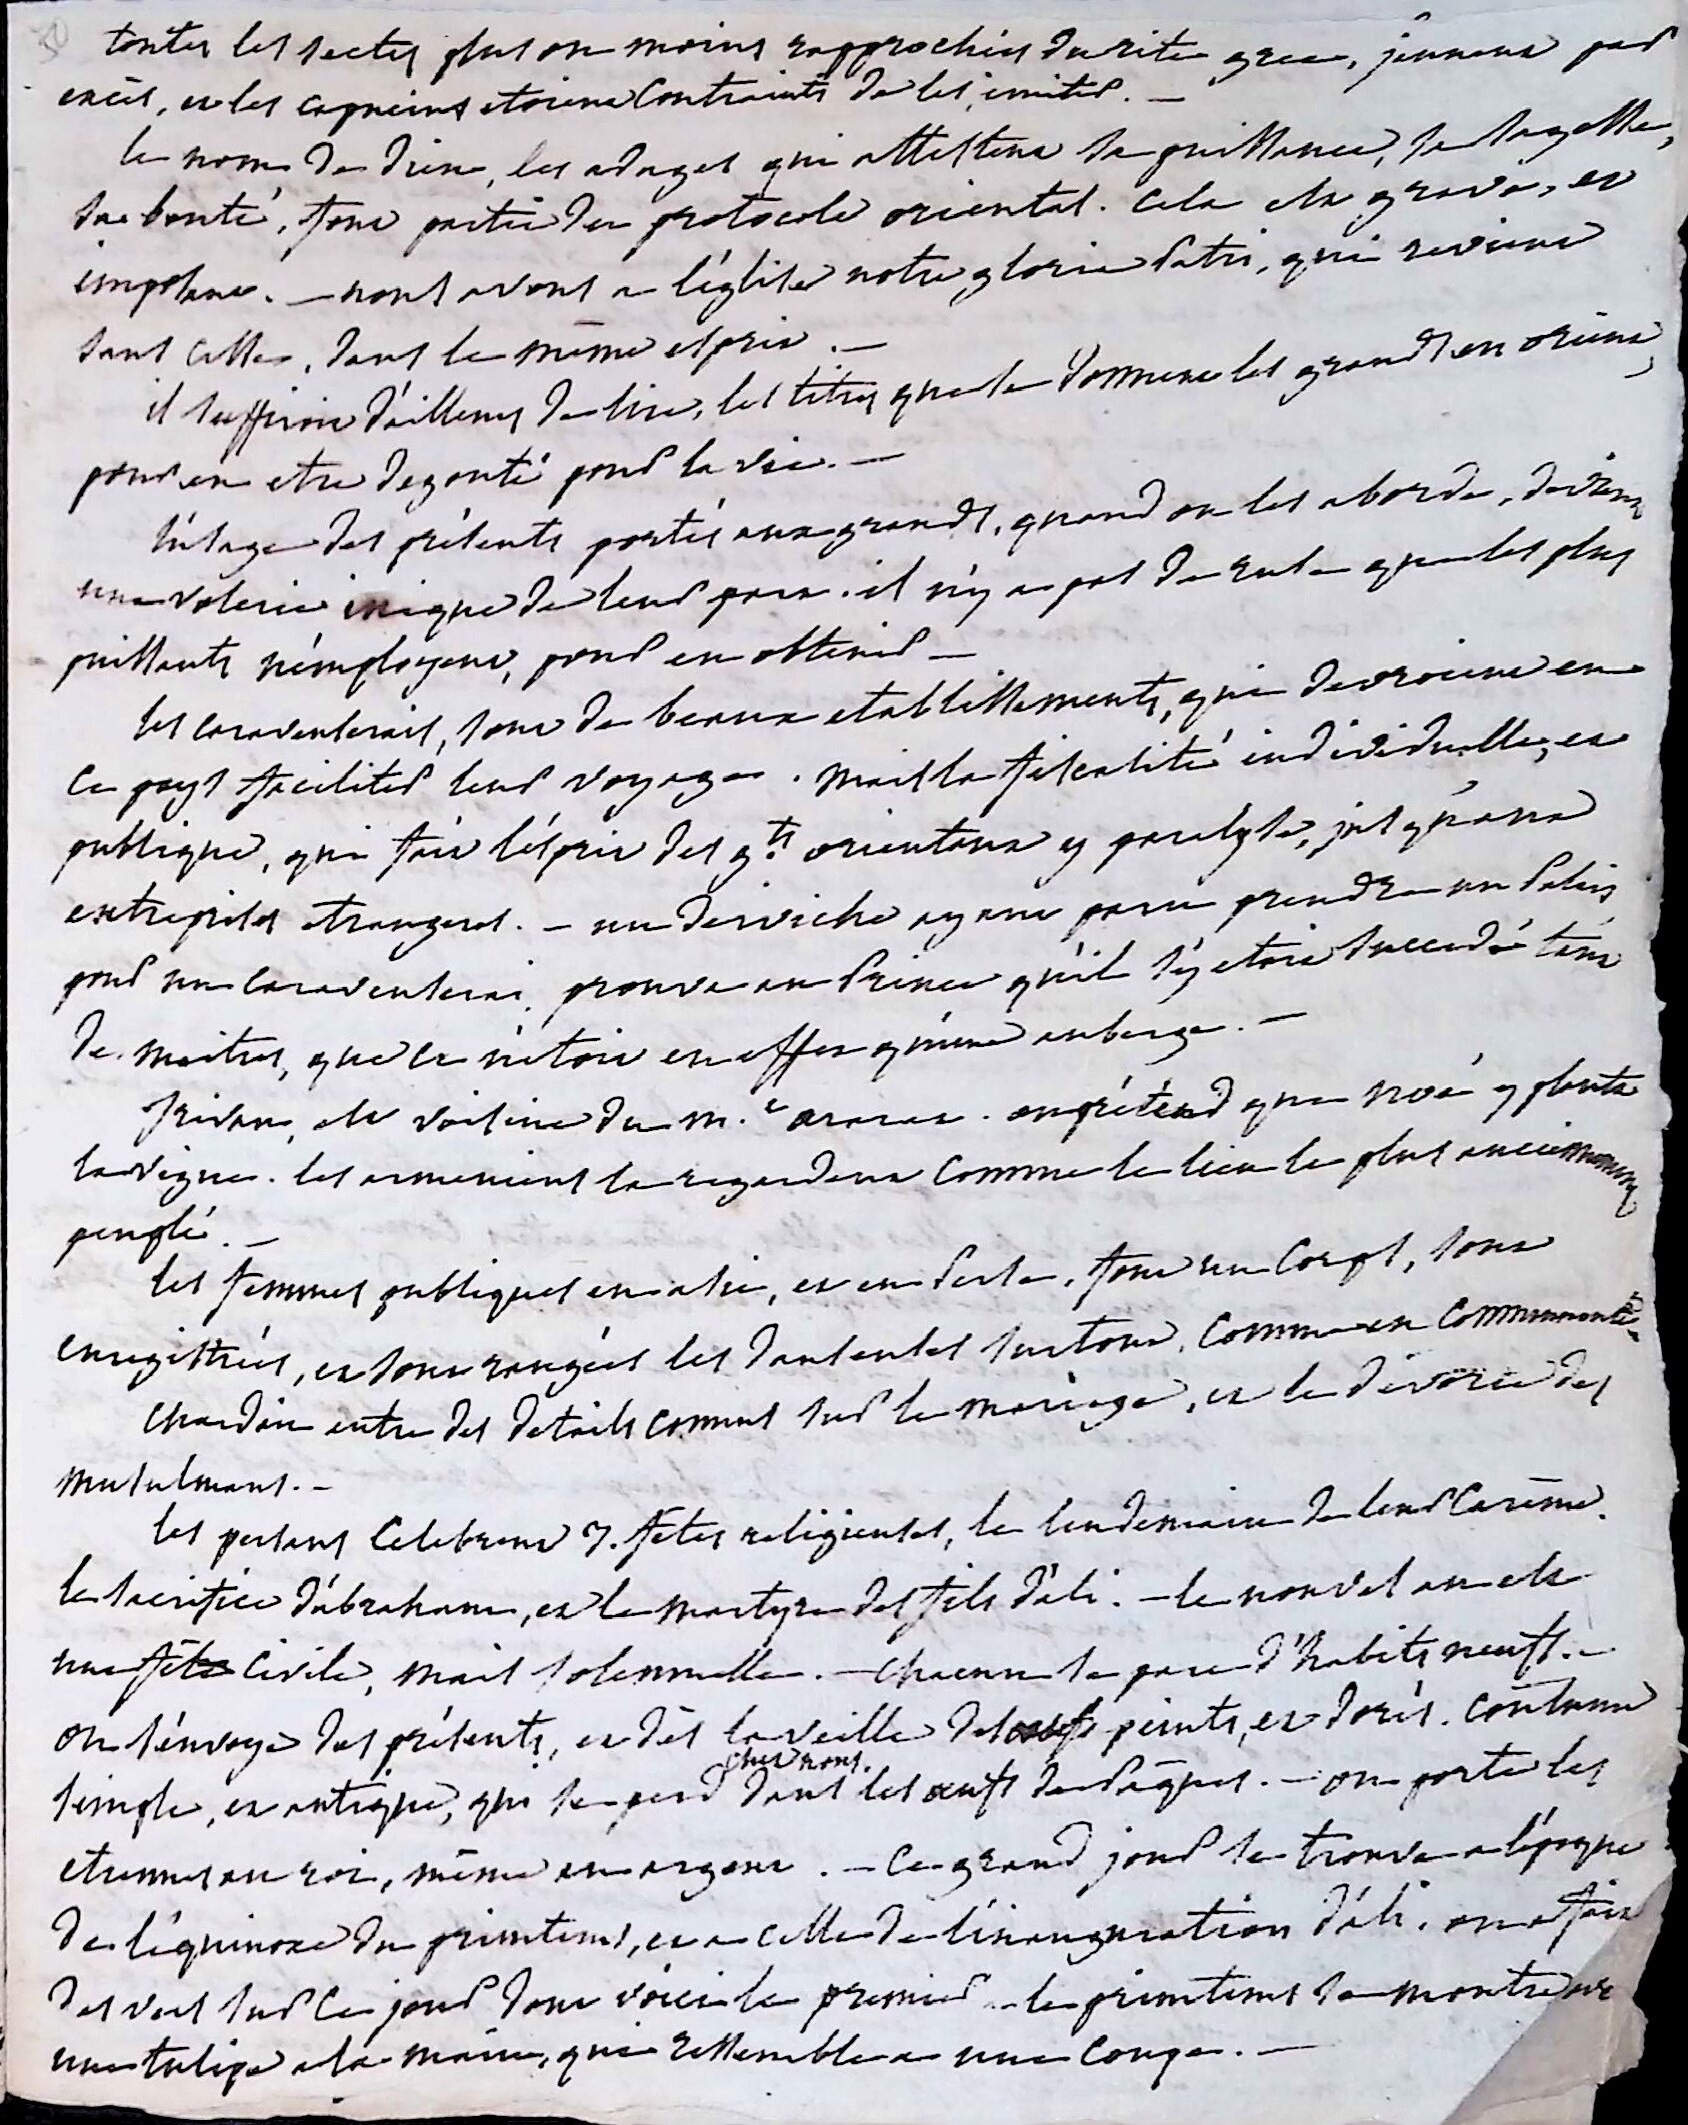 toutes les sectes plus ou moins rapprochées du rite grec, jeunent par
excès, et les capucins etoient Contraints de les imiter. —
le nom de dieu, les adages qui attestent sa puissance, sa sagesse,
sa bonté, font partie du protocole oriental. Cela est grave, et
imposant. — nous avons a l'église notre gloria Patri, qui revient
sans cesse, dans le même esprit. —
il suffiroit d'ailleurs de lire, les titres que se donnent les grands en orient,
pour en etre degouté pour la vie. —
l'usage des présents portés aux grands, quand on les aborde, devient
une volerie inique de leur part. il n'y a pas de ruse que les plus
puissants n'employent, pour en obtenir —
les caravenserais, sont de beaux etablissements, qui devroient en
ce pays faciliter leur voyage. mais la fiscalité individuelle, et
publique, qui fait l'esprit des g.ts orientaux y paralyse, jusqu'aux
entreprises etrangeres. — un derviche ayant paru prendre un Palais
pour un caravenserai, prouva au Prince qu'il s'y etoit succedé tant
de maitres, que ce n'etoit en effet qu'une auberge. —
Irivan, est voisine du m.t ararat. on prétend que noé y planta
la vigne. les armeniens la regardent comme le lieu le plus anciennement
peuplé. —
les femmes publiques en asie, et en Perse, font un Corps, sont
enregistrées, et sont rangées les danseuses surtout, comme en communauté. —
Chardin entre des details connus sur le mariage, et le divorce des
musulmans. —
les persans Celebrent 3. fêtes religieuses, le lendemain de leur Carême.
le sacrifice d'abraham, et le martyre des fils d'ali. — le nouvel an est
une fête Civile, mais solemnelle. — chacun se pare d'habits neufs. —
on s'envoye des présents, et dès la veille des oeufs peints, et dorés. coutume
simple, et antique, qui se perd chez nous. dans les oeufs de Pâques. — on porte les
etrennes au roi, même en argent. — ce grand jour se trouve a l'époque
de l'équinoxe du printems, et a celle de l'inauguration d'ali. on a fait
des vers sur ce jour dont voici le premier — le printems se montre avec
une tulipe a la main, qui ressemble a une coupe. —